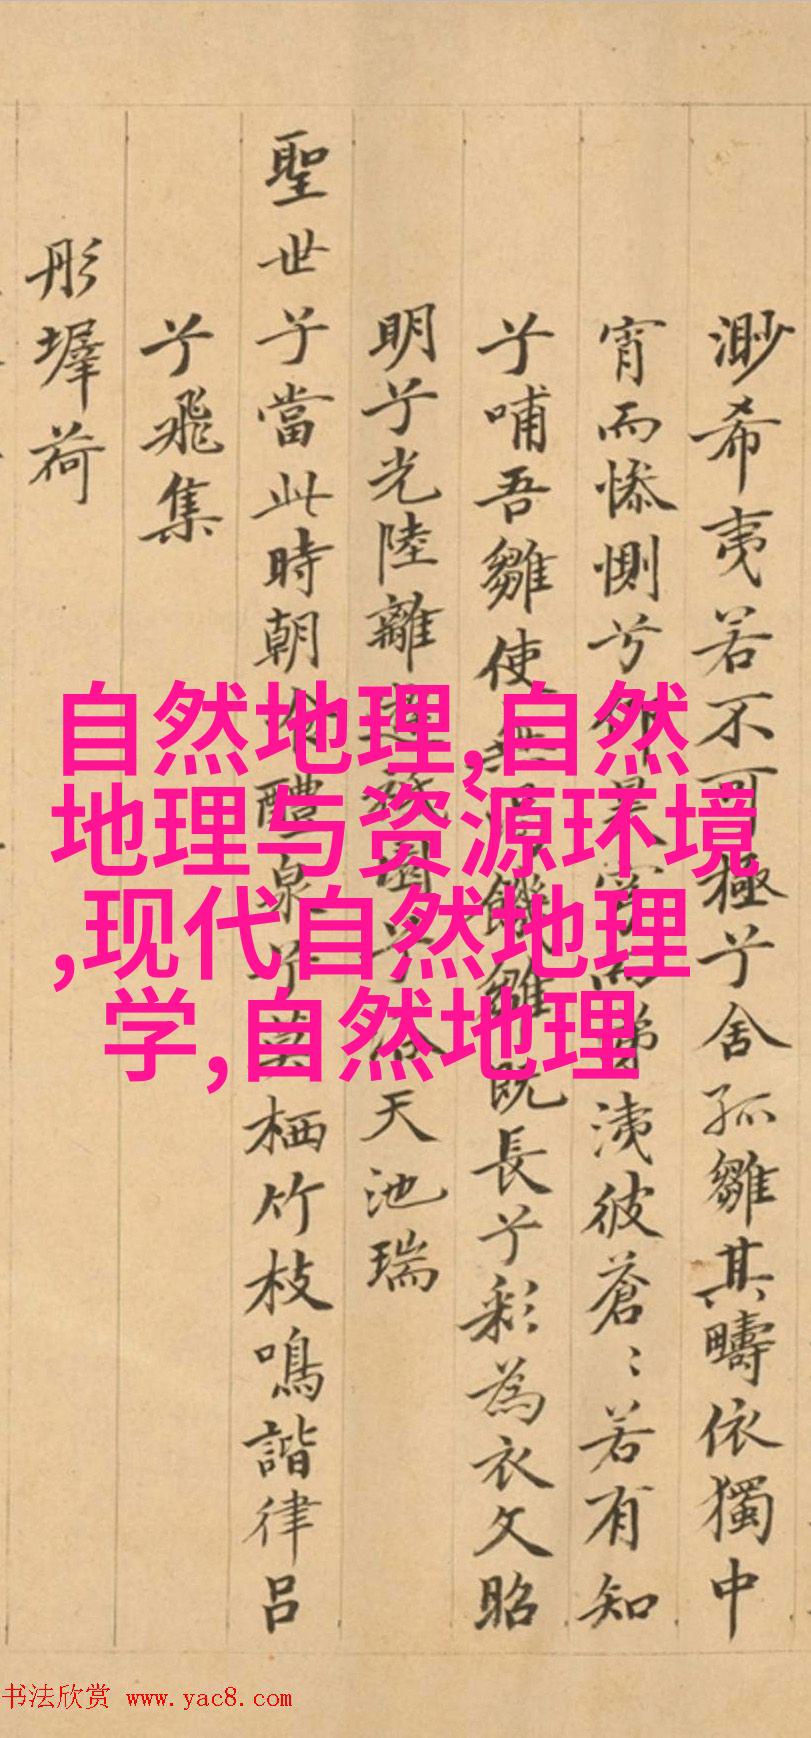 渺希夷若不可極兮舍孤雛其疇依獨中
宵而慘惻兮仰昊穹而涕洟彼蒼〻若有知
兮哺吾雛使無饑雛既長兮彩為衣文昭
明兮光陸離兮天池瑞
聖世兮當此時朝醴泉兮莫栖竹枝鳴諧律呂
兮飛集
彤墀荷
自然地理,自然
地理与资源环境
,现代自然地理
学,自然地理
书法欣赏 www.yac8.com